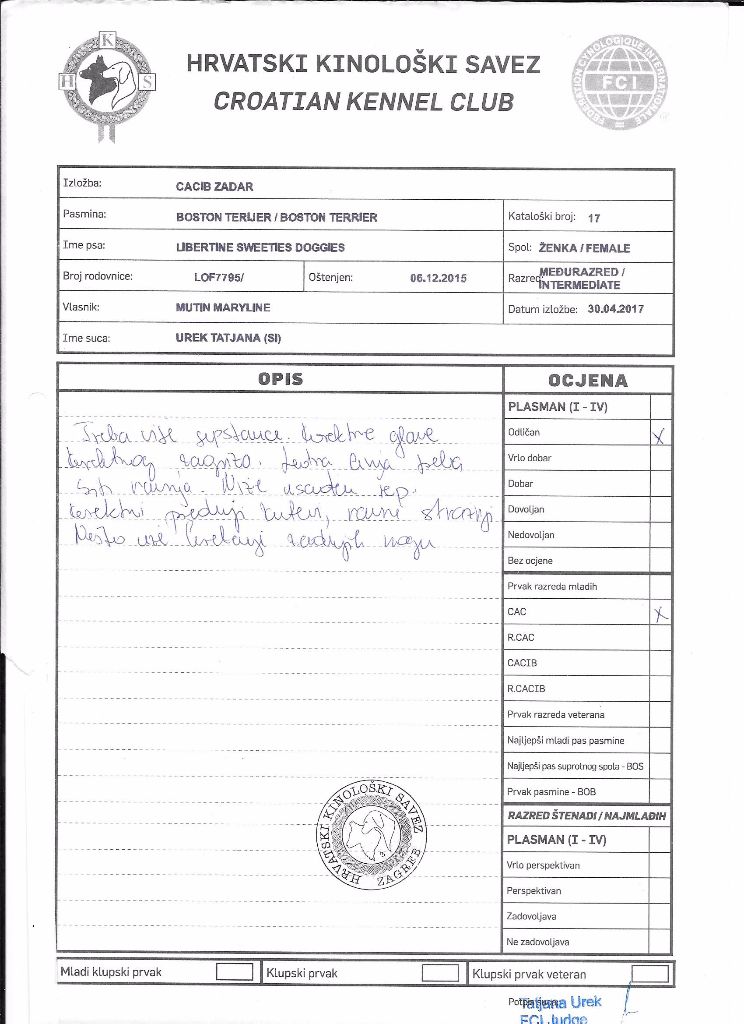 H K S
HRVATSKI KINOLOŠKI SAVEZ
CROATIAN KENNEL CLUB
FEDERATION CYNOLOGIQUE INTERNATIONALE
FCI
Izložba: CACIB ZADAR
Pasmina: BOSTON TERIJER / BOSTON TERRIER Kataloški broj: 17
Ime psa: LIBERTINE SWEETIES DOGGIES Spol: ŽENKA / FEMALE
Broj rodovnice: LOF7795/ Oštenjen: 06.12.2015 Razred: MEĐURAZRED / INTERMEDIATE
Vlasnik: MUTIN MARYLINE Datum izložbe: 30.04.2017
Ime suca: UREK TATJANA (SI)
OPIS
OCJENA
Treba više supstance. korektne glave
korektnog zagriza. linija
ravnija. Niže usađen rep.
korektni prednji kutevi, ravni stražnji
Nešto uže zadnjih nogu
PLASMAN (I - IV)
Odličan X
Vrlo dobar
Dobar
Dovoljan
Nedovoljan
Bez ocjene
Prvak razreda mladih
CAC X
R.CAC
CACIB
R.CACIB
Prvak razreda veterana
Najljepši mladi pas pasmine
Najljepši pas suprotnog spola - BOS
Prvak pasmine - BOB
RAZRED ŠTENADI / NAJMLAĐIH
PLASMAN (I - IV)
Vrlo perspektivan
Perspektivan
Zadovoljava
Ne zadovoljava
HRVATSKI KINOLOŠKI SAVEZ
ZAGREB
Mladi klupski prvak
Klupski prvak
Klupski prvak veteran
Tatjana Urek
FCI Judge